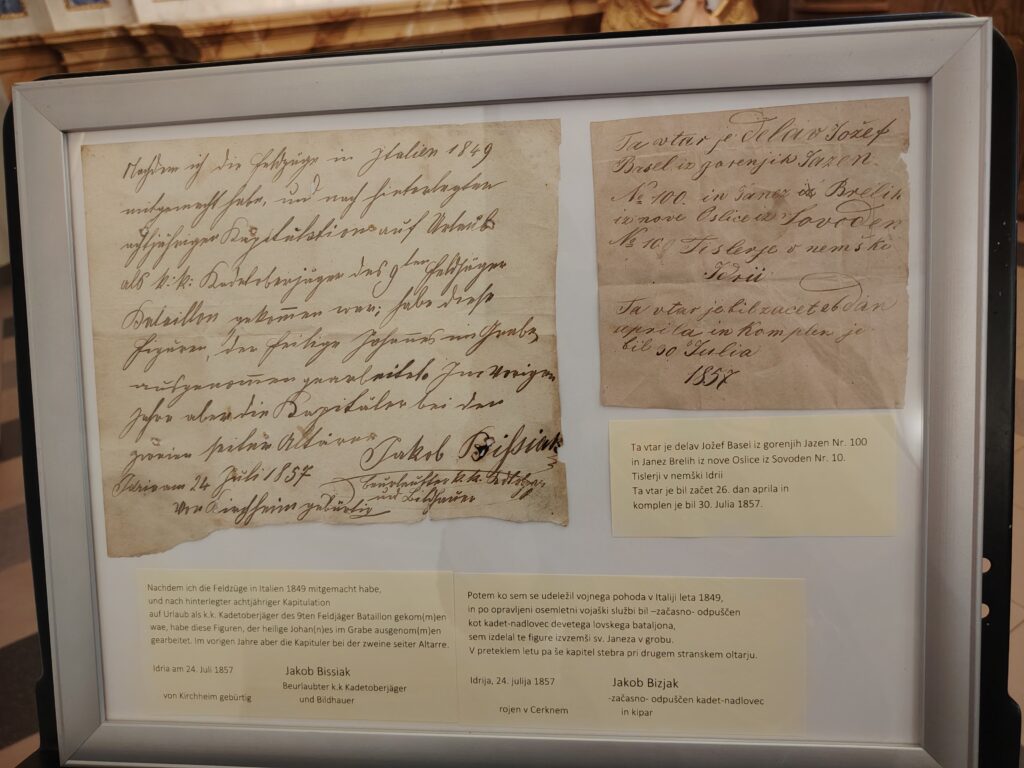 Nachdem ich die Feldzüge in Italien 1849
mitgemacht habe, und nach hinterlegten
achtjähriger Kapitulation auf Urlaub
als k: k: Kadetoberjäger des 9ten Feldjäger
Bataillon gekommen war; habe diese
Figuren, der heilige Johannes im Grabe
ausgenommen gearbeitet. Im vorigen
Jahre aber die Kapitäler bei den
zweien seiten Altären
Jakob Bissiak
Idria am 24 Juli 1857
beurlaubter k.k.
und Bildhauer
von Kirchheim gebürtig
Ta vtar je delav Jožef
Basel iz gorenjih Jazen.
No 100. in Janez Brelih
iz nove Oslice iz Sovoden
No 10 Tislerje v nemški
Idrii
Ta vtar je bil zacet
aprila in Komplen je
bil 30 Julia
1857
Ta vtar je delav Jožef Basel iz gorenjih Jazen Nr. 100
in Janez Brelih iz nove Oslice iz Sovoden Nr. 10.
Tislerji v nemški Idrii
Ta vtar je bil začet 26. dan aprila in
komplen je bil 30. Julia 1857.
Nachdem ich die Feldzüge in Italien 1849 mitgemacht habe,
und nach hinterlegter achtjähriger Kapitulation
auf Urlaub als k.k. Kadetoberjäger des 9ten Feldjäger Bataillon gekom(m)en
wae, habe diese Figuren, der heilige Johan(n)es im Grabe ausgenom(m)en
gearbeitet. Im vorigen Jahre aber die Kapituler bei der zweine seiter Altarre.
Idria am 24. Juli 1857
Jakob Bissiak
Beurlaubter k.k Kadetoberjäger
und Bildhauer
von Kirchheim gebürtig
Potem ko sem se udeležil vojnega pohoda v Italiji leta 1849,
in po opravljeni osemletni vojaški službi bil –začasno- odpuščen
kot kadet-nadlovec devetega lovskega bataljona,
sem izdelal te figure izvzemši sv. Janeza v grobu.
V preteklem letu pa še kapitel stebra pri drugem stranskem oltarju.
Idrija, 24. julija 1857
Jakob Bizjak
-začasno- odpuščen kadet-nadlovec
in kipar
rojen v Cerknem